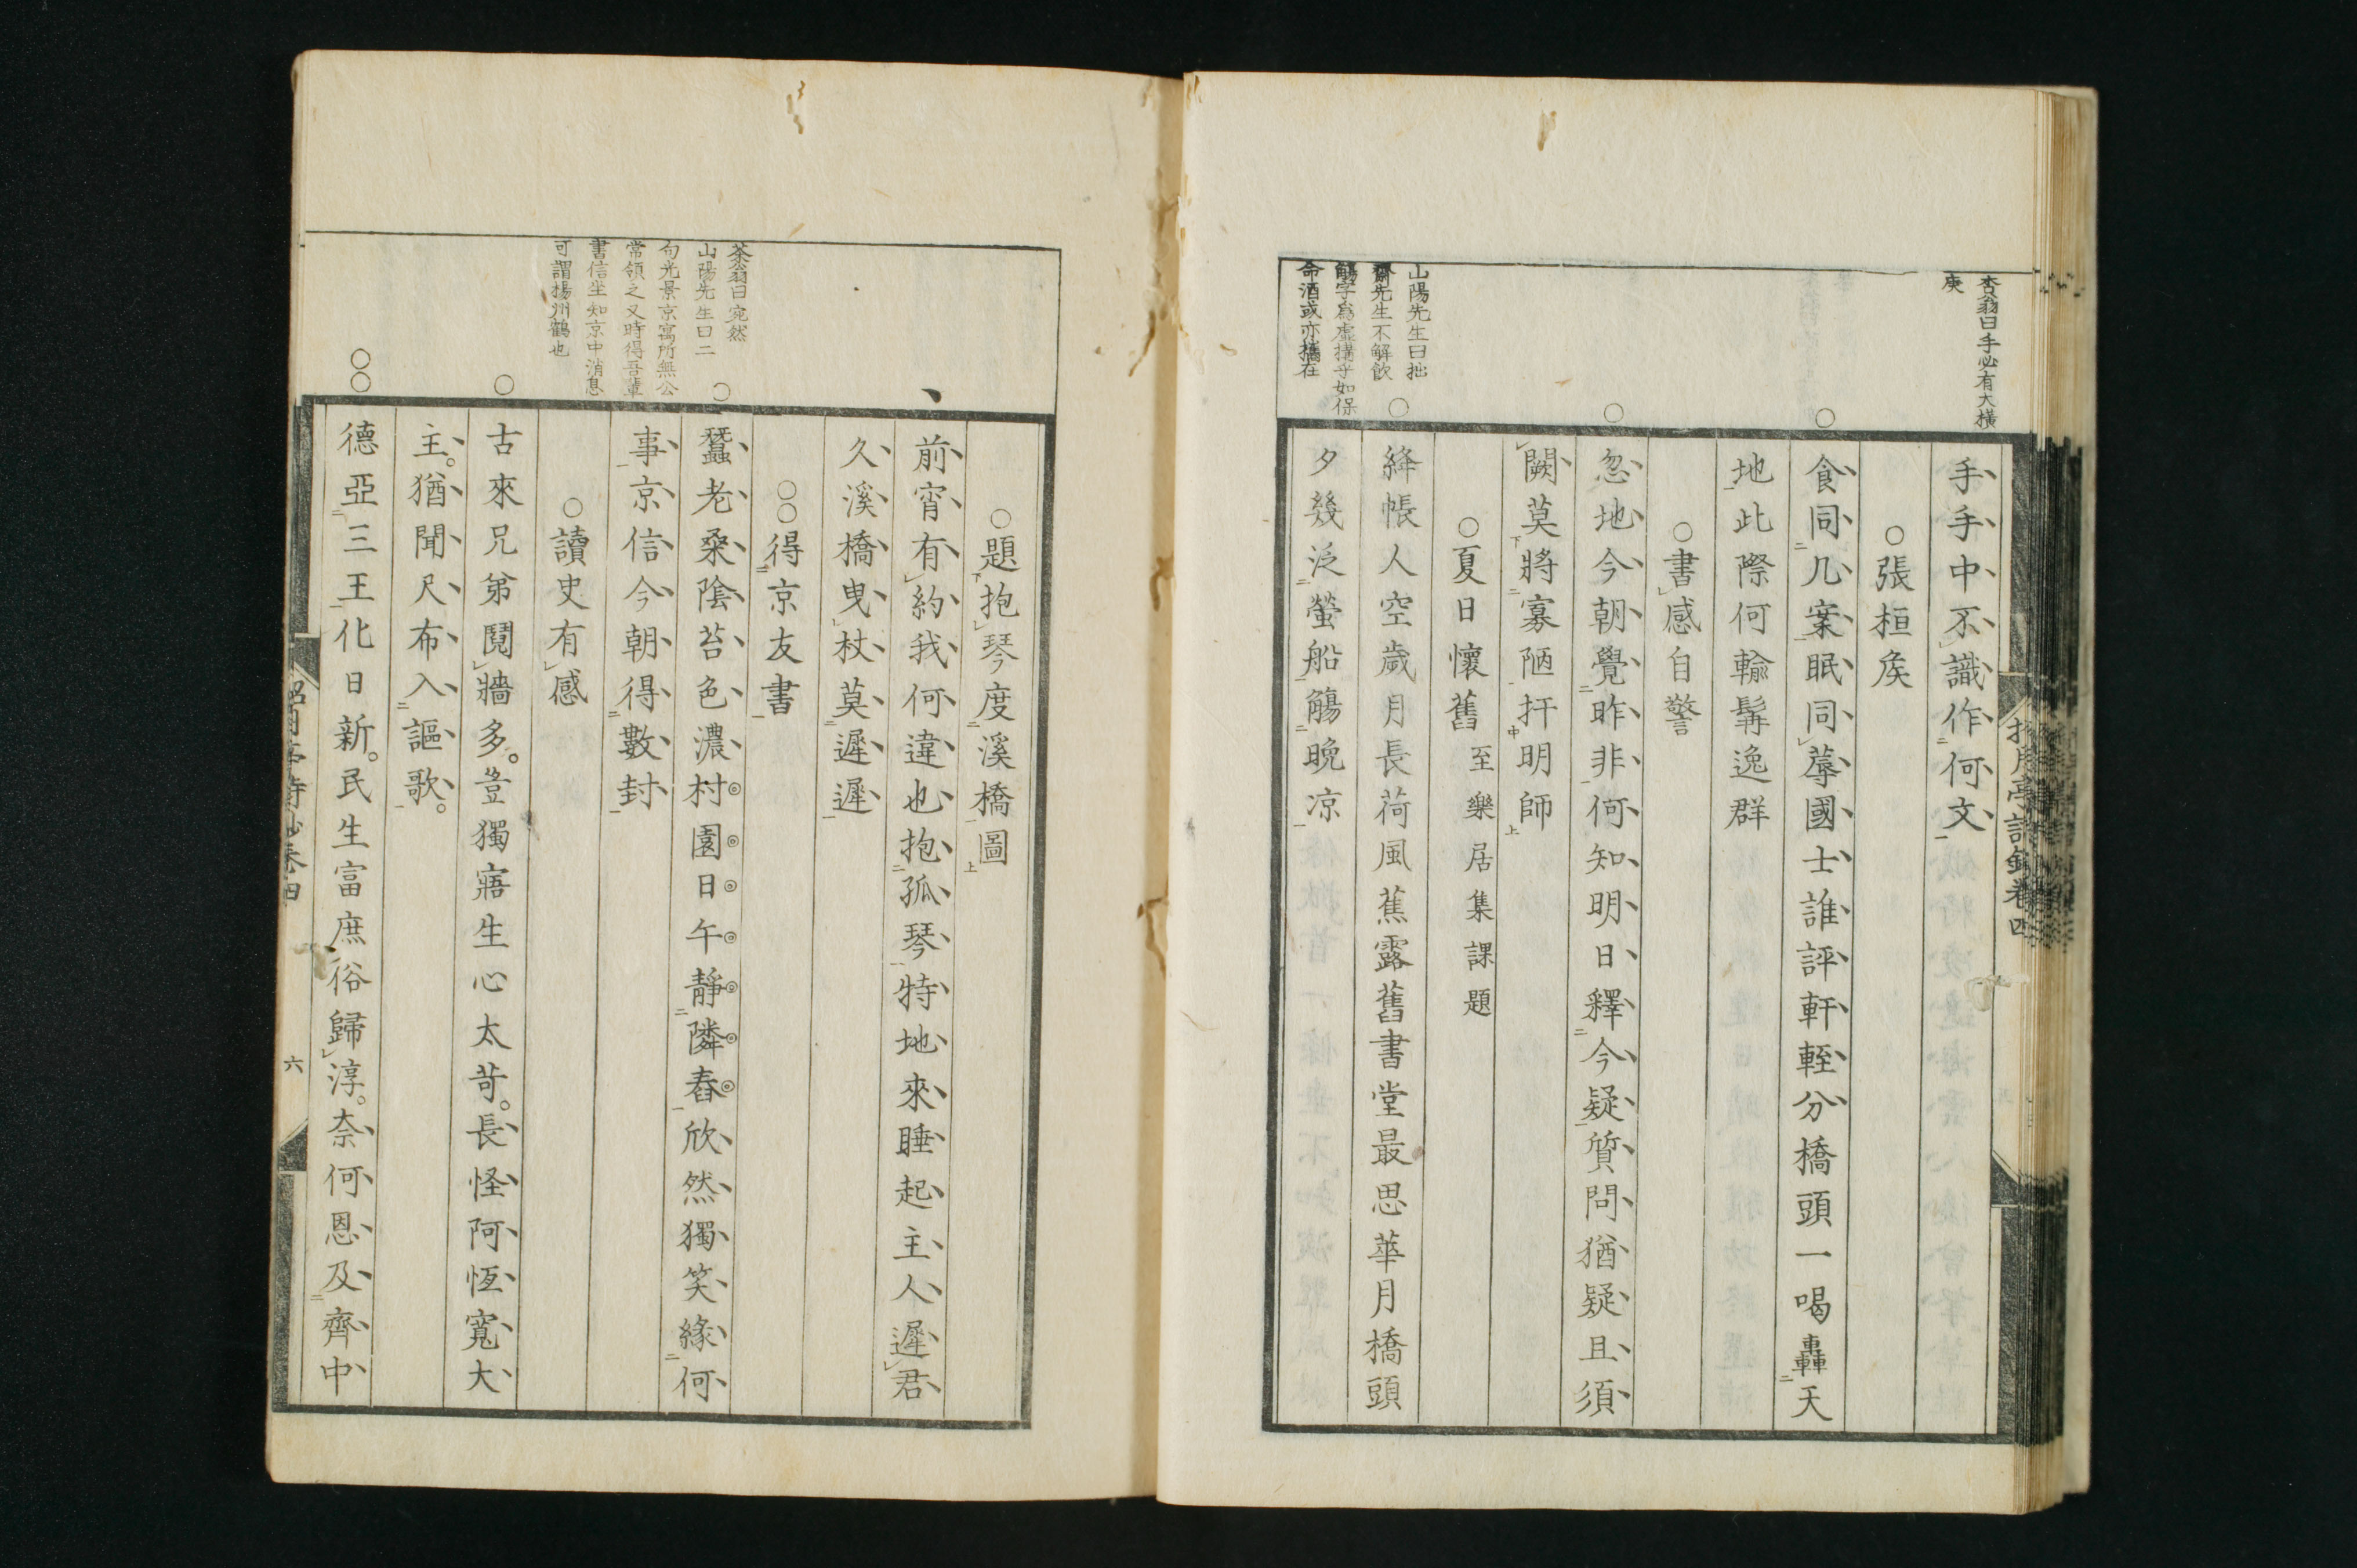 杏翁曰手必有大橫
庚
手手中不識作何文
○張桓矦
食同几案眠同蓐國士誰評軒輊分橋頭一喝轟天
地此際何輸髯逸群
○書感自警
忽地今朝覺昨非何知明日釋今疑質問猶疑且須
闕莫將寡陋扞明師
○夏日懷舊 至樂居集課題
山陽先生曰拙
齋先生不解飲
觴字爲虛搆乎如保
命酒或亦攜在
絳帳人空歲月長荷風蕉露舊書堂最思華月橋頭
夕幾泛螢船觴晚凉
○題抱琴度溪橋圖
前宵有約我何違也抱孤琴特地來睡起主人遲君
久溪橋曳杖莫遲遲
○○得京友書
茶翁曰宛然
山陽先生曰二
句光景京寓所無公
常領之又時得吾輩
書信坐知京中消息
可謂揚州鶴也
蠶老桑陰苔色濃村園日午靜隣舂欣然獨笑緣何
事京信今朝得數封
○讀史有感
古來兄弟鬩牆多。豈獨寤生心太苛。長怪阿恆寬大
主。猶聞尺布入謳歌。
德亞三王化日新。民生富庶俗歸淳。奈何恩及齊中
六